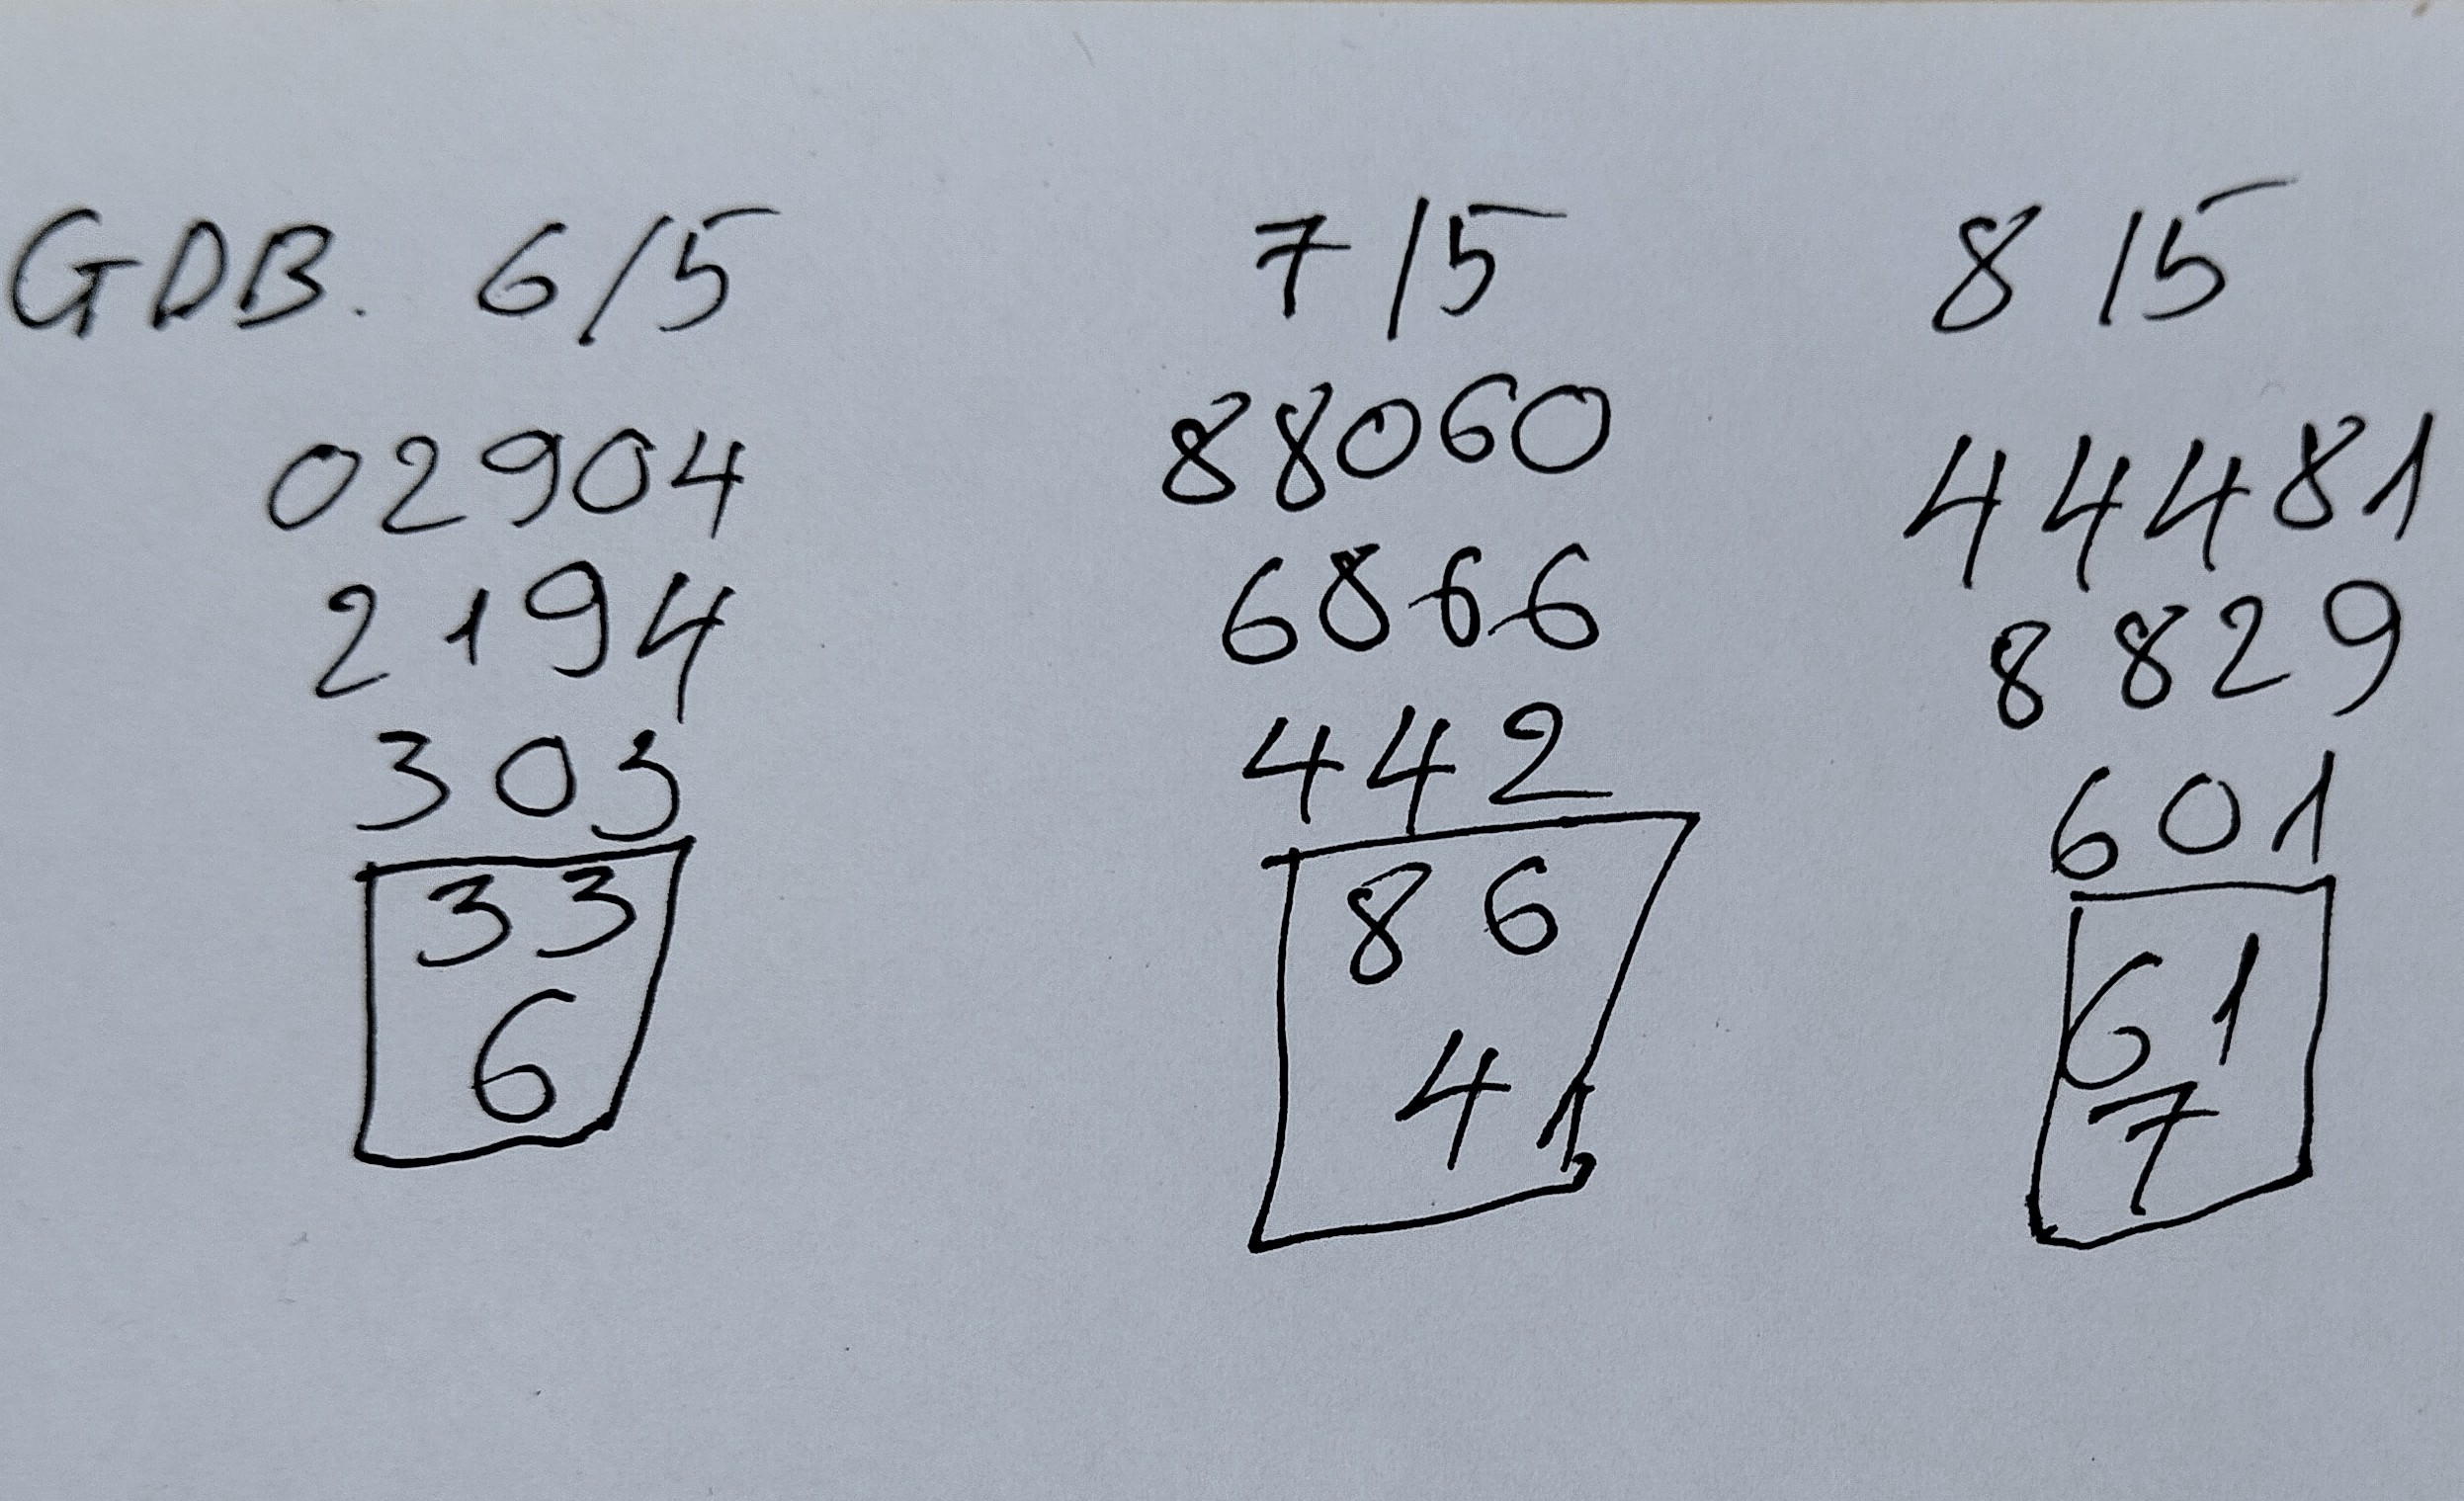 GDB. 6/5 7/5 8/5
02904 88060 44481
2194 6866 8829
303 442 601
33 86 61
6 41 7